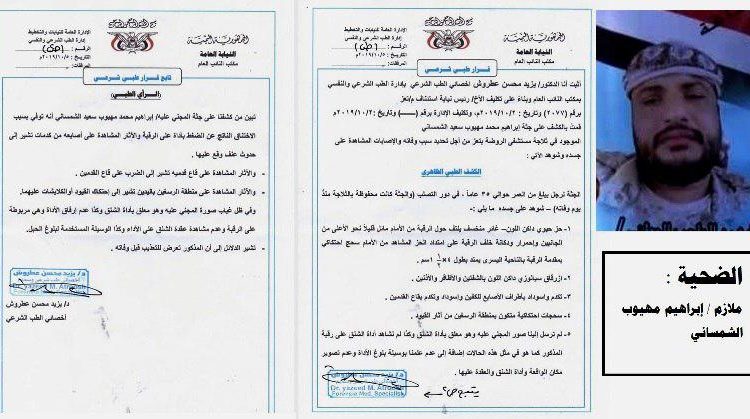 الجمهورية اليمنية
النيابة العامة
مكتب النائب العام
الإدارة العامة للنيابات والتحقيق
إدارة الطب الشرعي والنفسي
الرقم : (ط)
التاريخ : ٢٠١٩/١٠/٥م
المرفقات:
قرار طبي شرعي
أثبت أنا الدكتور/ يزيد محسن عطروش أخصائي الطب الشرعي بإدارة الطب الشرعي والنفسي
بمكتب النائب العام وبناءً على تكليف الأخ/ رئيس نيابة استئناف م/تعز
برقم (٢٠٧٧) وتاريخ ٢٠١٩/١٠/٢م، وتكليف الإدارة برقم (ــــ) وتاريخ ٢٠١٩/١٠/٢م
قمت بالكشف على جثة إبراهيم محمد مهيوب سعيد الشمساني
الموجود في ثلاجة مستشفى الروضة بتعز من أجل تحديد سبب وفاته والإصابات المشاهدة على
جسده وشوهد الآتي :
الكشف الطبي الظاهري
الجثة لرجل يبلغ من العمر حوالي ٣٥ عاماً ، في دور التصلب (والجثة كانت محفوظة بالثلاجة منذ
يوم وفاته) – شوهد على جسده ما يلي :
١- حز حيوي داكن اللون– غائر منخسف يلتف حول الرقبة من الأمام مائل قليلاً نحو الأعلى من
الجانبين واحمرار ودكانة خلف الرقبة على امتداد الحز المشاهد من الأمام سحج احتكاكي
بمقدمة الرقبة بالناحية اليسرى يمتد بطول
٢- ازرقاق سيانوزي داكن اللون بالشفتين والأظافر والأذنين .
٣- تكدم واسوداد بأطراف الأصابع للكفين واسوداد وتكدم بقاع القدمين .
٤- سحجات احتكاكية متكون بمنطقة الرسغين من آثار القيود .
٥- لم ترسل إلينا صور المجني عليه وهو معلق بأداة الشنق وكذا لم تشاهد أداة الشنق على رقبة
المذكور كما هو في مثل هذه الحالات إضافة إلى عدم علمنا بوسيلة بلوغ الأداة وعدم تصوير
مكان الواقعة وأداة الشنق والعقدة عليها .
Dr. yazeed M. Atroosh
Forensic Med. Specialist
يتبع ص٢
الجمهورية اليمنية
النيابة العامة
مكتب النائب العام
الإدارة العامة للنيابات والتحقيق
إدارة الطب الشرعي والنفسي
التاريخ : ٢٠١٩/١٠/٥م
المرفقات:
تابع قرار طبي شرعي
(الرأي الطبي)
تبين من كشفنا على جثة المجني عليه/ إبراهيم محمد مهيوب سعيد الشمساني أنه توفي بسبب
الاختناق الناتج عن الضغط بأداة على الرقبة والآثار المشاهدة على أصابعه من كدمات تشير إلى
حدوث عنف وقع عليها .
- والآثار المشاهدة على قاع قدميه تشير إلى الضرب على قاع القدمين .
- والآثار المشاهدة على منطقة الرسغين باليدين تشير إلى إحتكاك القيود أو الكلابشات عليهما.
- وفي ظل غياب صورة المجني عليه وهو معلق بأداة الشنق وكذا عدم إرفاق الأداة وهي مربوطة
على الرقبة وعدم مشاهدة عقدة الشنق على الأداة وكذا الوسيلة المستخدمة لبلوغ الحبل.
- تشير الدلائل إلى أن المذكور تعرض للتعذيب قبل وفاته .
د/ يزيد محسن عطروش
Dr. yazeed M. Atroosh
د/ يزيد محسن عطروش
أخصائي الطب الشرعي
الضحية :
ملازم / إبراهيم مهيوب
الشمساني